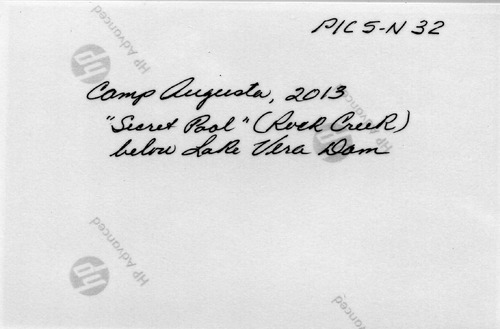 PIC 5-N 32
Camp Augusta, 2013
"Secret Pool" (Rock Creek)
below Lake Vera Dam
hp HP Advanced
hp HP Advanced
hp HP Advanced
HP Advanced